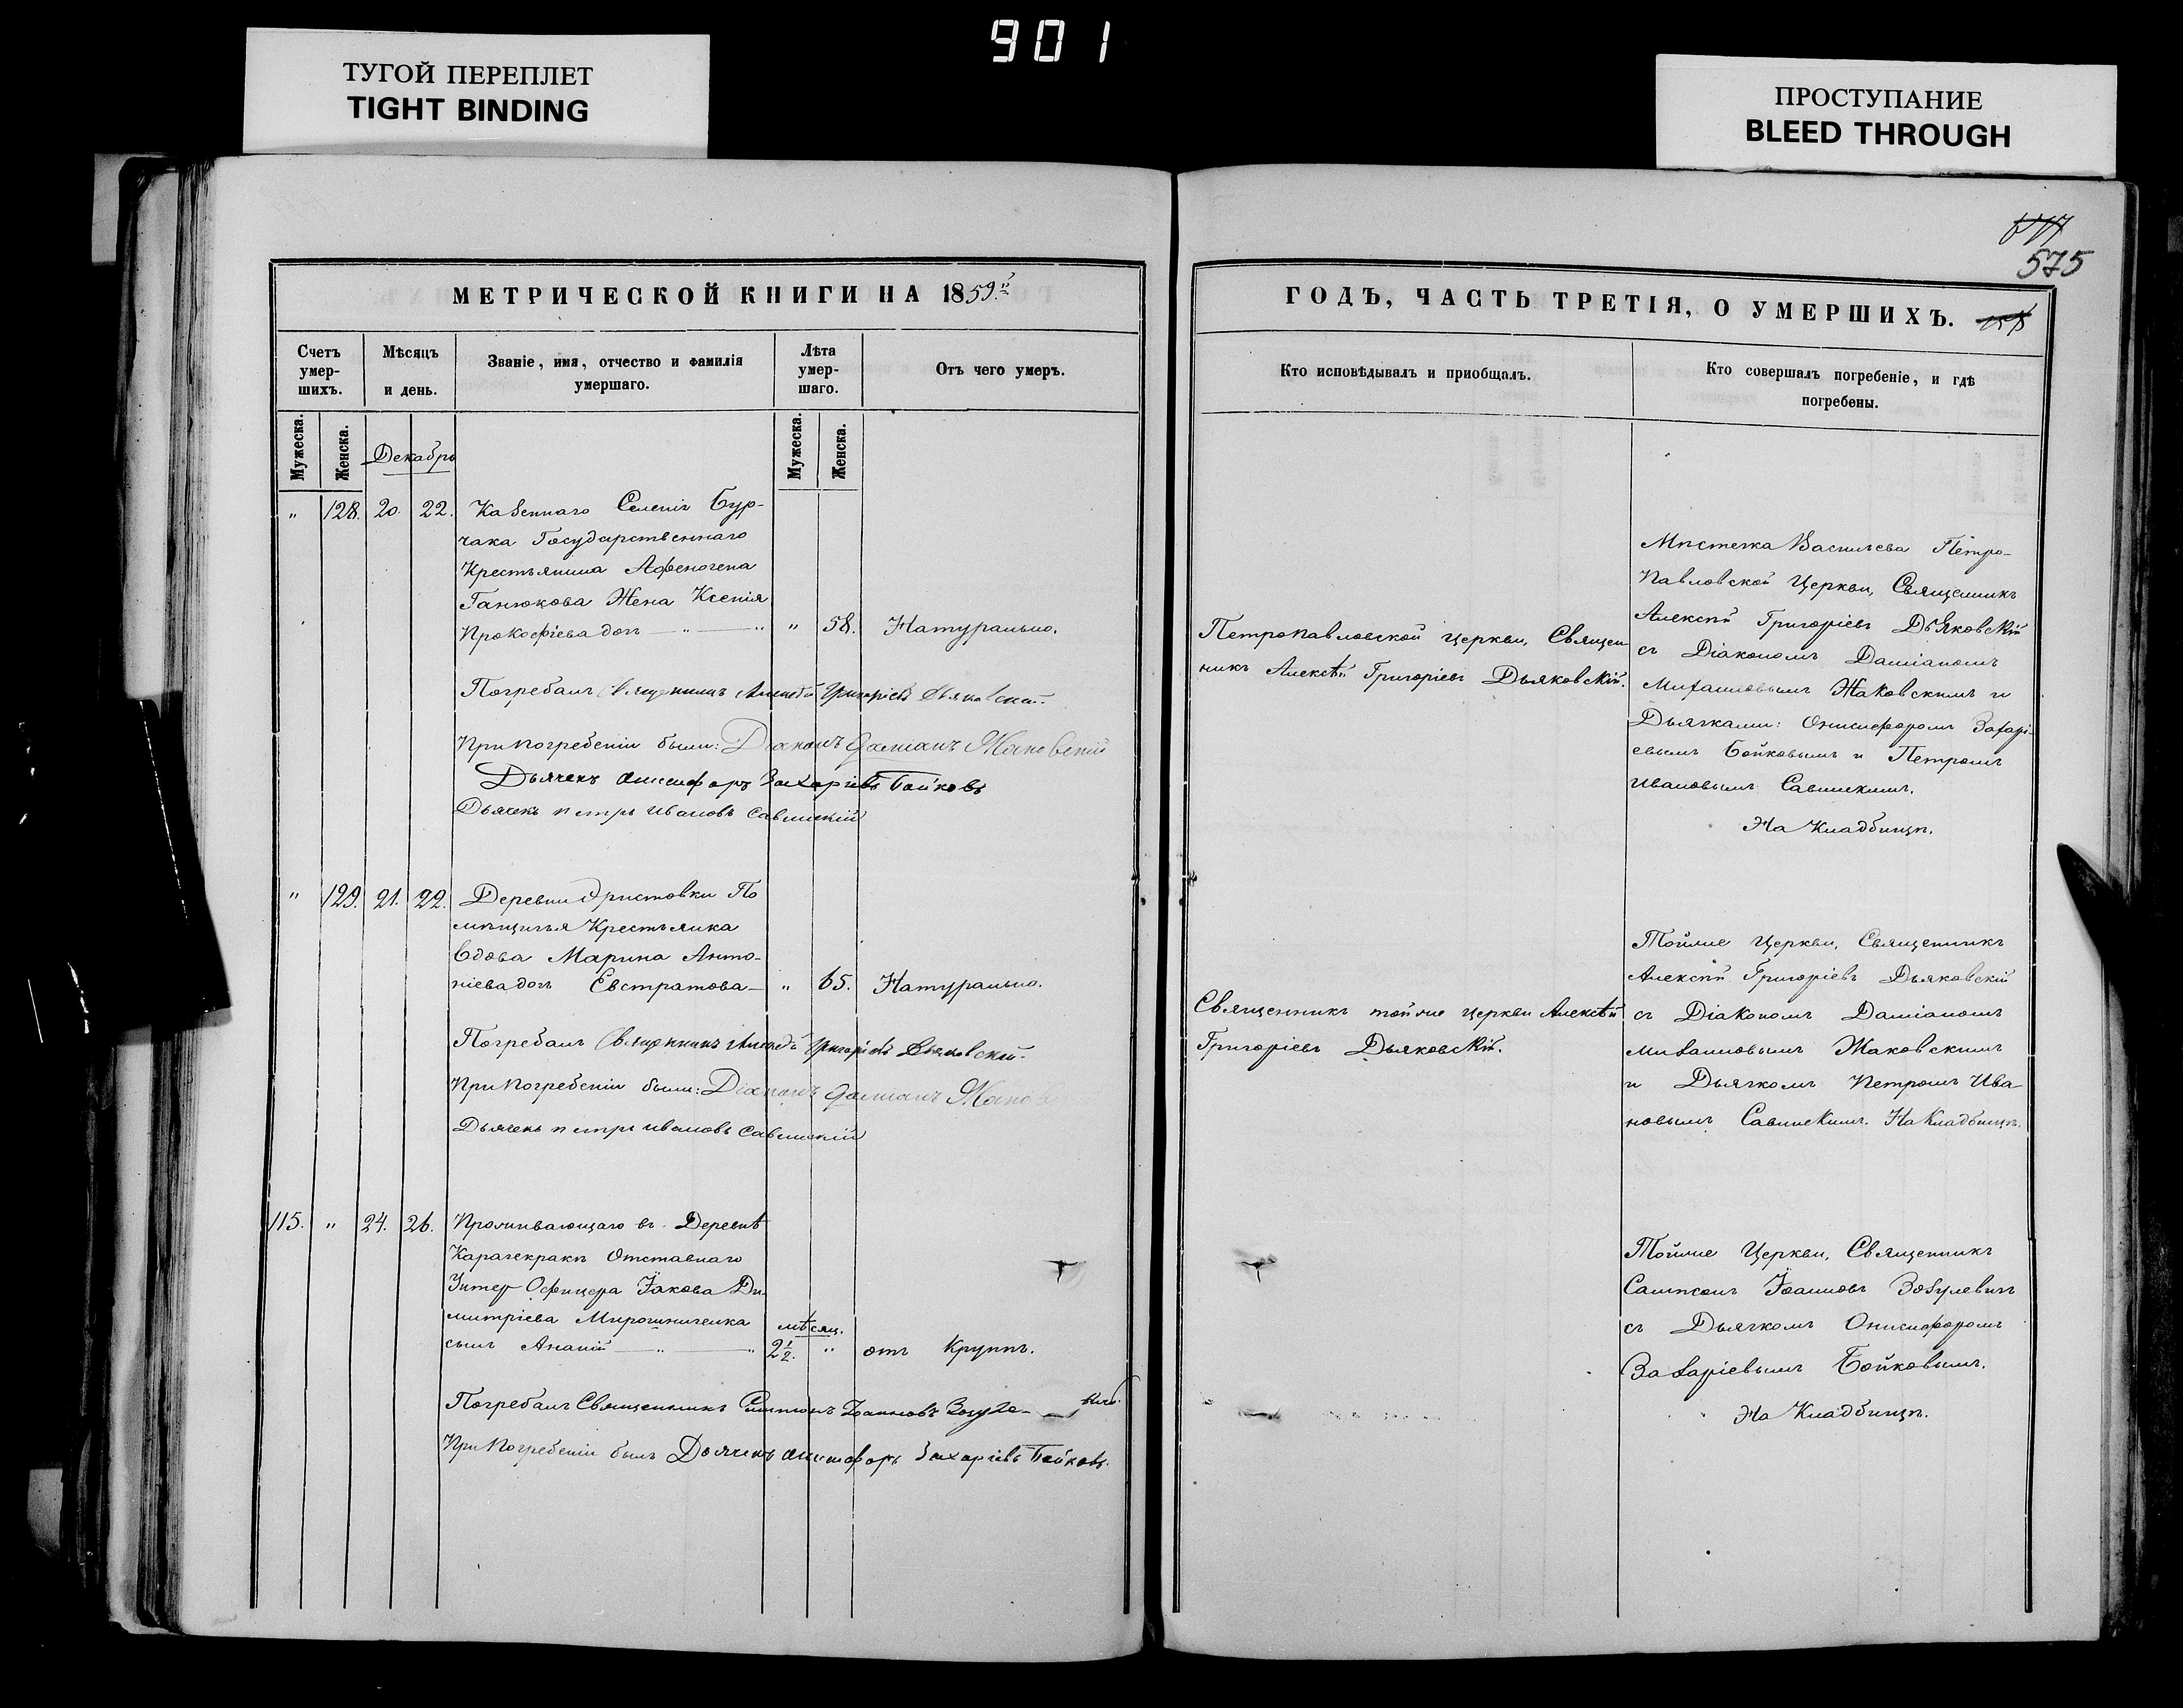 901
ТУГОЙ ПЕРЕПЛЕТ
TIGHT BINDING
ПРОСТУПАНИЕ
BLEED THROUGH
575
МЕТРИЧЕСКОЙ КНИГИ НА 1859.й
Счетъ умер-шихъ.
Мѣсяцъ и день.
Званіе, имя, отчество и фамилія умершаго.
Лѣта умер-шаго.
Отъ чего умеръ.
Мужеска.
Женска.
Декабрь
Мужеска.
Женска.
" 128. 20. 22. Казеннаго Селенія Бур-
чака Государственнаго
Крестьянина Афеногена
Ганюкова Жена Ксенія
Прокофіева дочь — " — " " 58. Натурально.
Погребалъ Священникъ Алексѣй Григоріевъ Дьяковскій.
При погребеніи были: Діаконъ Даміанъ Жаковскій
Дьячекъ Онисифоръ Захаріевъ Бойковъ
Дьячекъ петръ Ивановъ Савинскій
" 129. 21. 22. Деревни Эристовки По
мѣщичья Крестьянка
вдова Марина Анто-
ніева дочь Евстратова — " 65. Натурально.
Погребалъ Священникъ Алексѣй Григоріевъ Дьяковскій.
При погребеніи были: Діаконъ Даміанъ Жаковс
Дьячекъ петръ Ивановъ Савинскій
115. " 24. 26. Проживающаго въ Деревнѣ
Карачекракѣ Отставнаго
Унтер Офицера Іакова Ди
митріева Мирошниченка мѣсяц.
сынъ Ананій — " — " 2 1/2. " отъ Крупѣ.
Погребалъ Священникъ Сампсонъ Іоанновъ Зозуле- вичъ
При Погребеніи былъ Дьячекъ Онисифоръ Захаріевъ Бойковъ.
ГОДЪ, ЧАСТЬ ТРЕТІЯ, О УМЕРШИХЪ.
Кто исповѣдывалъ и приобщалъ.
Кто совершалъ погребеніе, и гдѣ погребены.
Петропавловской церкви, Священ
никъ Алексѣй Григоріевъ Дьяковскій.
Мѣстечка Васильева Петро-
Павловской Церкви, Священникъ
Алексѣй Григоріевъ Дьяковскій
съ Діакономъ Даміаномъ
Михаиловымъ Жаковскимъ и
Дьячками: Онисифоромъ Захарі-
евымъ Бойковымъ и Петромъ
Ивановымъ Савинскимъ.
На Кладбищѣ.
Священникъ тойже церкви Алексѣй
Григоріевъ Дьяковскій.
Тойже Церкви, Священникъ
Алексѣй Григоріевъ Дьяковскій
съ Діакономъ Даміаномъ
Михаиловымъ Жаковскимъ
и Дьячкомъ Петромъ Ива
новымъ Савинскимъ. На Кладбищѣ.
Тойже Церкви, Священникъ
Сампсонъ Іоанновъ Зозулевичъ
съ Дьячкомъ Онисифоромъ
Захаріевымъ Бойковымъ.
На Кладбищѣ.